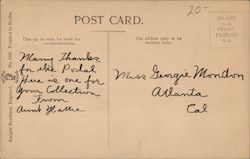 20-
POST CARD.
This up to may be used for
communication.
The address only to be
written here.
Many Thanks
for the Postal
Here is one for
your Collection
From
Aunt Hattie
Miss Georgie Mondon
Atlanta
Cal
Knight Brothers, England.
Printed in Berlin